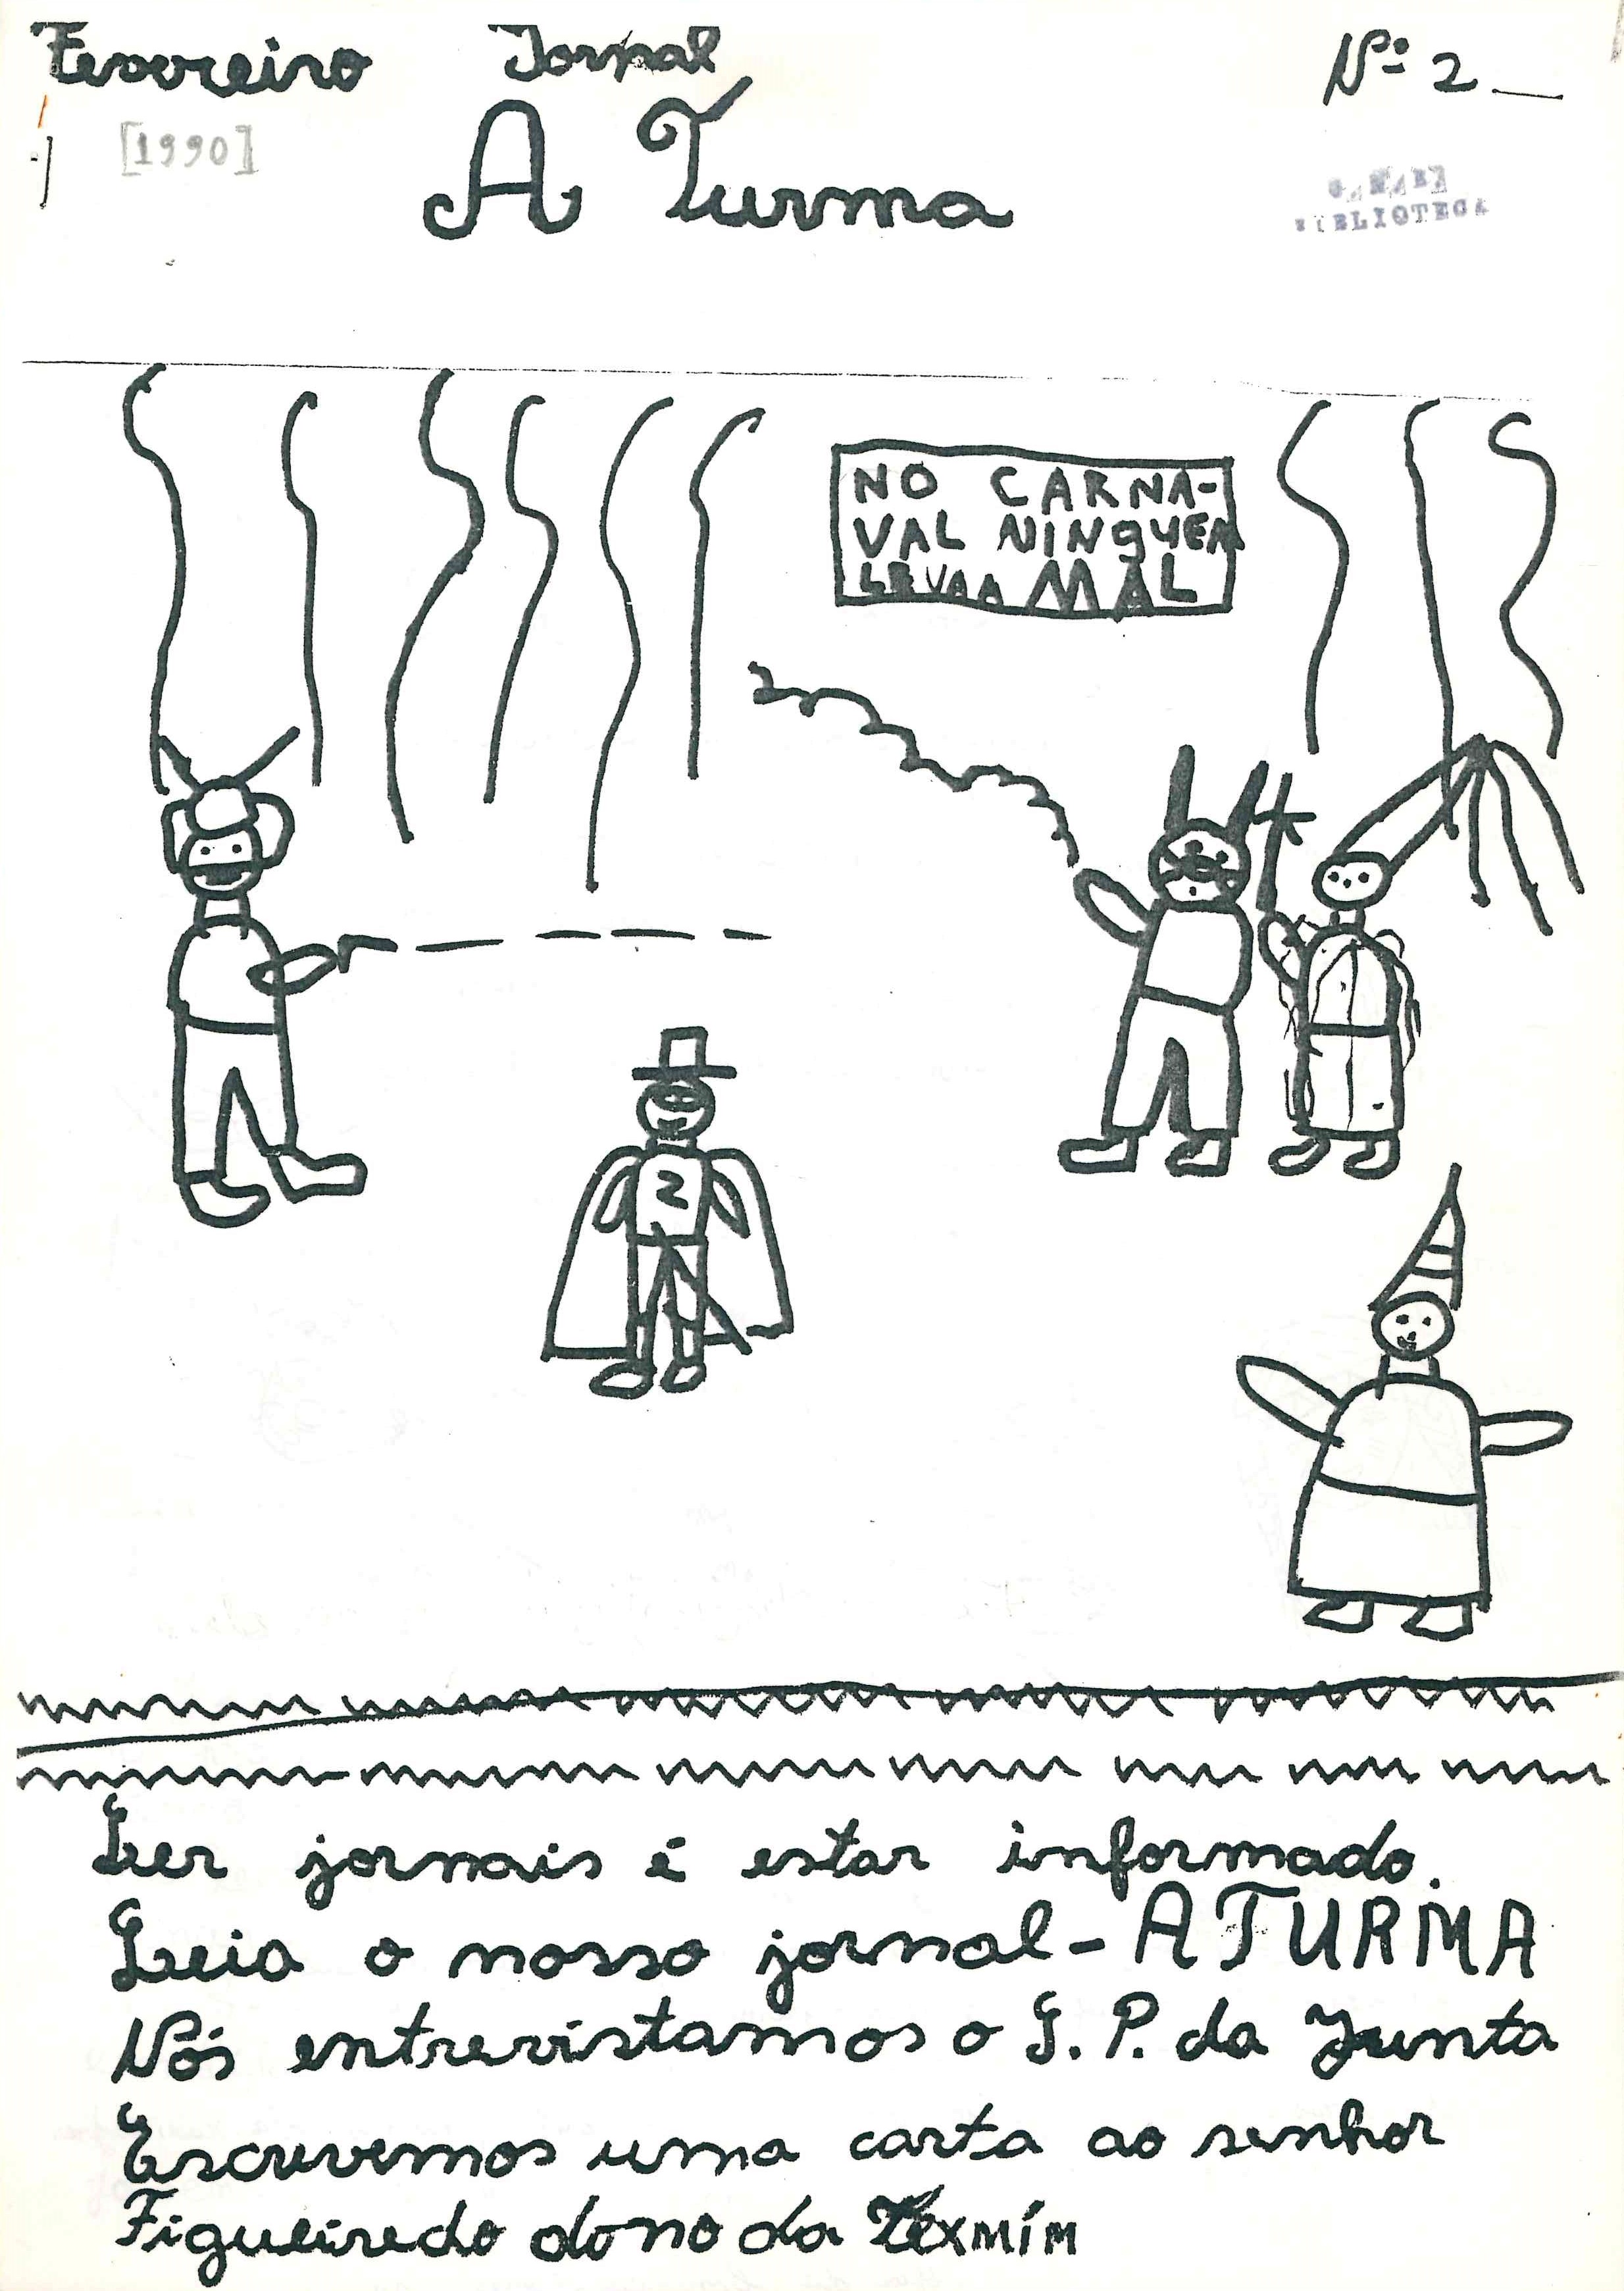 Fevereiro Jornal Nº 2
[1990]
A Turma
BIBLIOTECA
NO CARNA-
VAL NINGUEM
LEVA A MAL
2
Ler jornais é estar informado.
Leia o nosso jornal - A TURMA
Nós entrevistamos o S. P. da Junta
Escrevemos uma carta ao senhor
Figueiredo dono da Texmím